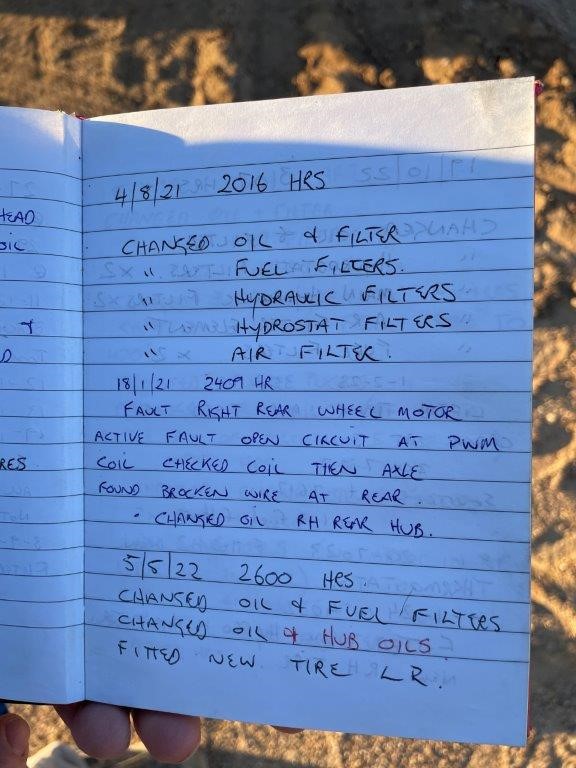 HEAD
OIL
+
D
RES
4/8/21 2016 HRS
CHANGED OIL & FILTER
" FUEL FILTERS.
" HYDRAULIC FILTERS
" HYDROSTAT FILTERS.
" AIR FILTER.
18/1/21 2409 HR
FAULT RIGHT REAR WHEEL MOTOR
ACTIVE FAULT OPEN CIRCUIT AT PWM
COIL CHECKED COIL THEN AXLE
FOUND BROCKEN WIRE AT REAR.
• CHANGED OIL RH REAR HUB.
5/5/22 2600 HRS.
CHANGED OIL & FUEL FILTERS
CHANGED OIL & HUB OILS
FITTED NEW TIRE LR.